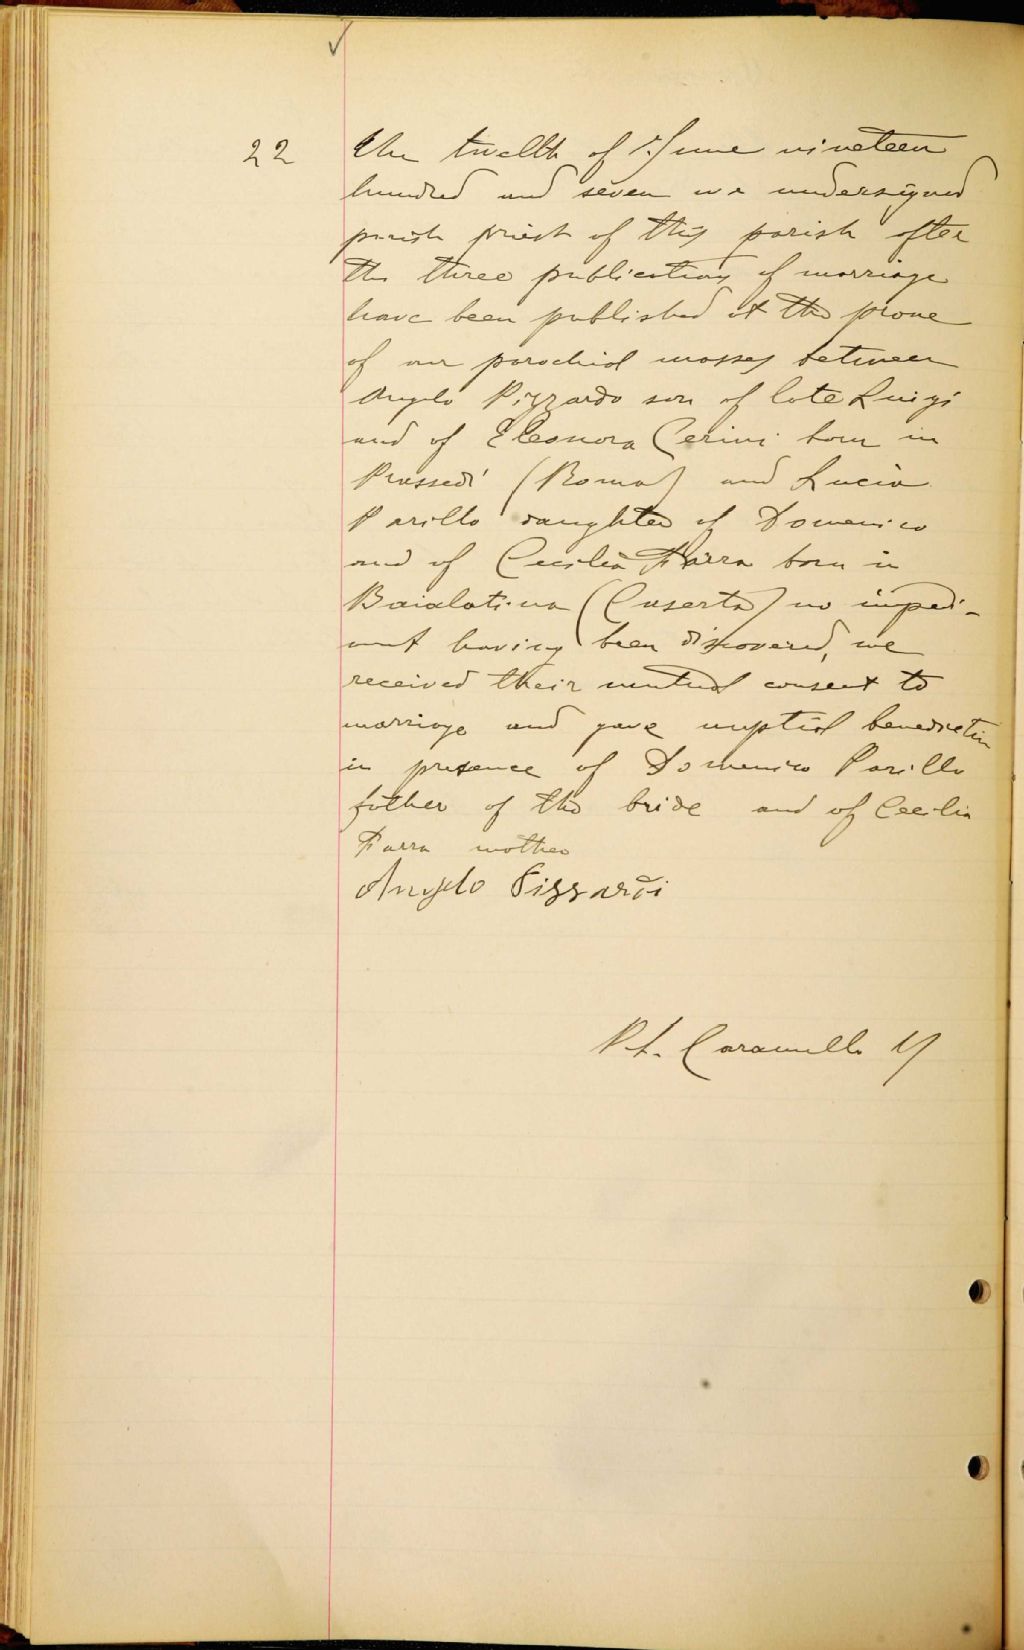 22
The twelth of June nineteen
hundred and seven we undersigned
parish priest of this parish after
the three publications of marriage
have been published at the prone
of our parochial masses between
Angelo Pizzardo son of late Luigi
and of Eleonora Cerini born in
Prassedi (Roma) and Lucia
Parillo daughter of Domenico
and of Cecilia Farra born in
Baialatina (Caserta) no impedi-
ment having been discovered, we
received their mutual consent to
marriage and gave nuptial benediction
in presence of Domenico Parillo
father of the bride and of Cecilia
Farra mother
Angelo Pizzardi
Pt. Caramello